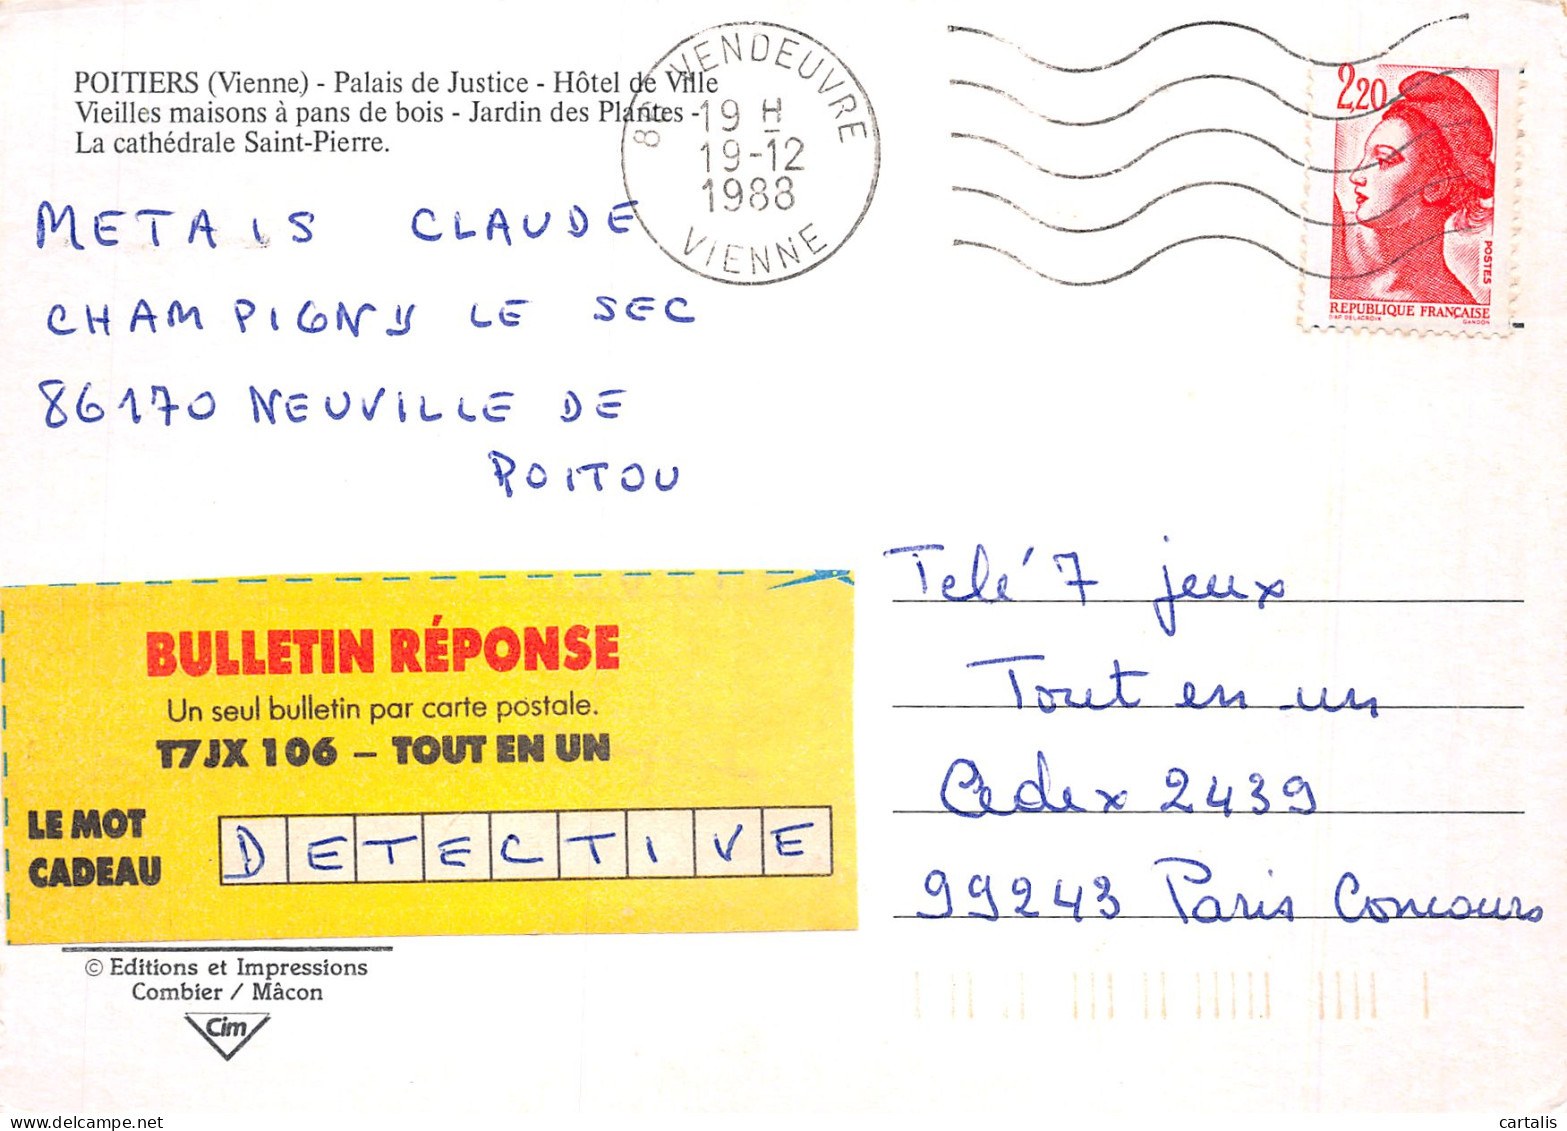 POITIERS (Vienne) - Palais de Justice - Hôtel de Ville
Vieilles maisons à pans de bois - Jardin des Plantes -
La cathédrale Saint-Pierre.
VENDEUVRE
19 H
19-12
1988
VIENNE
2,20
POSTES
REPUBLIQUE FRANÇAISE
D'AP. DELACROIX
GANDON
METAIS CLAUDE
CHAMPIGNY LE SEC
86170 NEUVILLE DE
POITOU
BULLETIN RÉPONSE
Un seul bulletin par carte postale.
T7JX 106 – TOUT EN UN
LE MOT
CADEAU
DETECTIVE
Telé 7 jeux
Tout en un
Cedex 2439
99243 Paris Concours
© Editions et Impressions
Combier / Mâcon
Cim
cartalis